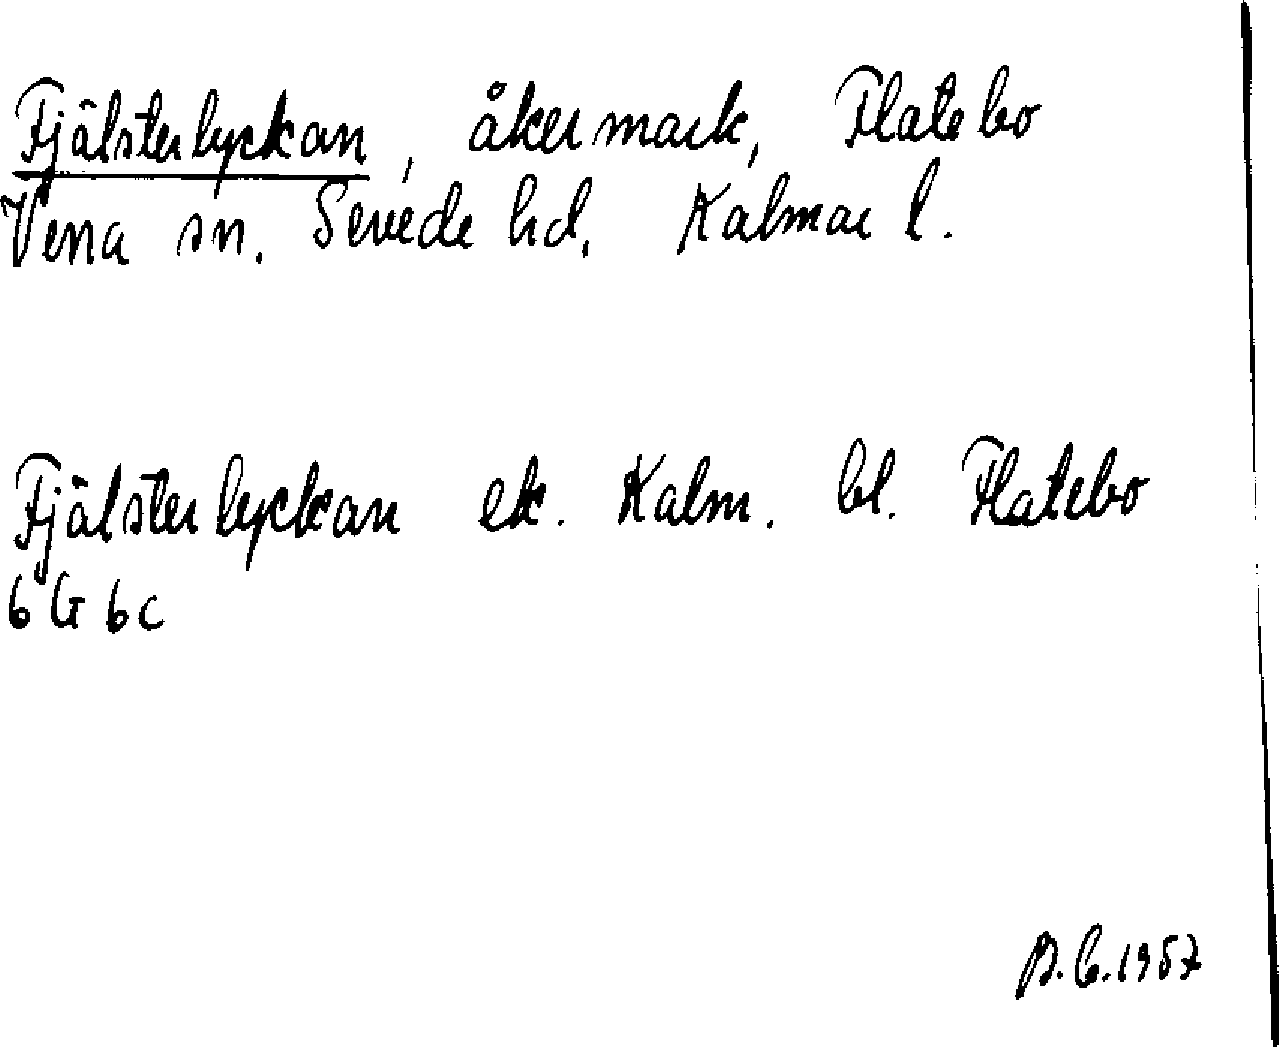 Fjälsterlyckan, åkermark, Flatebo
Vena sn. Sevede hd. Kalmar l.
Fjälsterlyckan ek. Kalm. bl. Flatebo
6 G 6 c
B.C. 1957